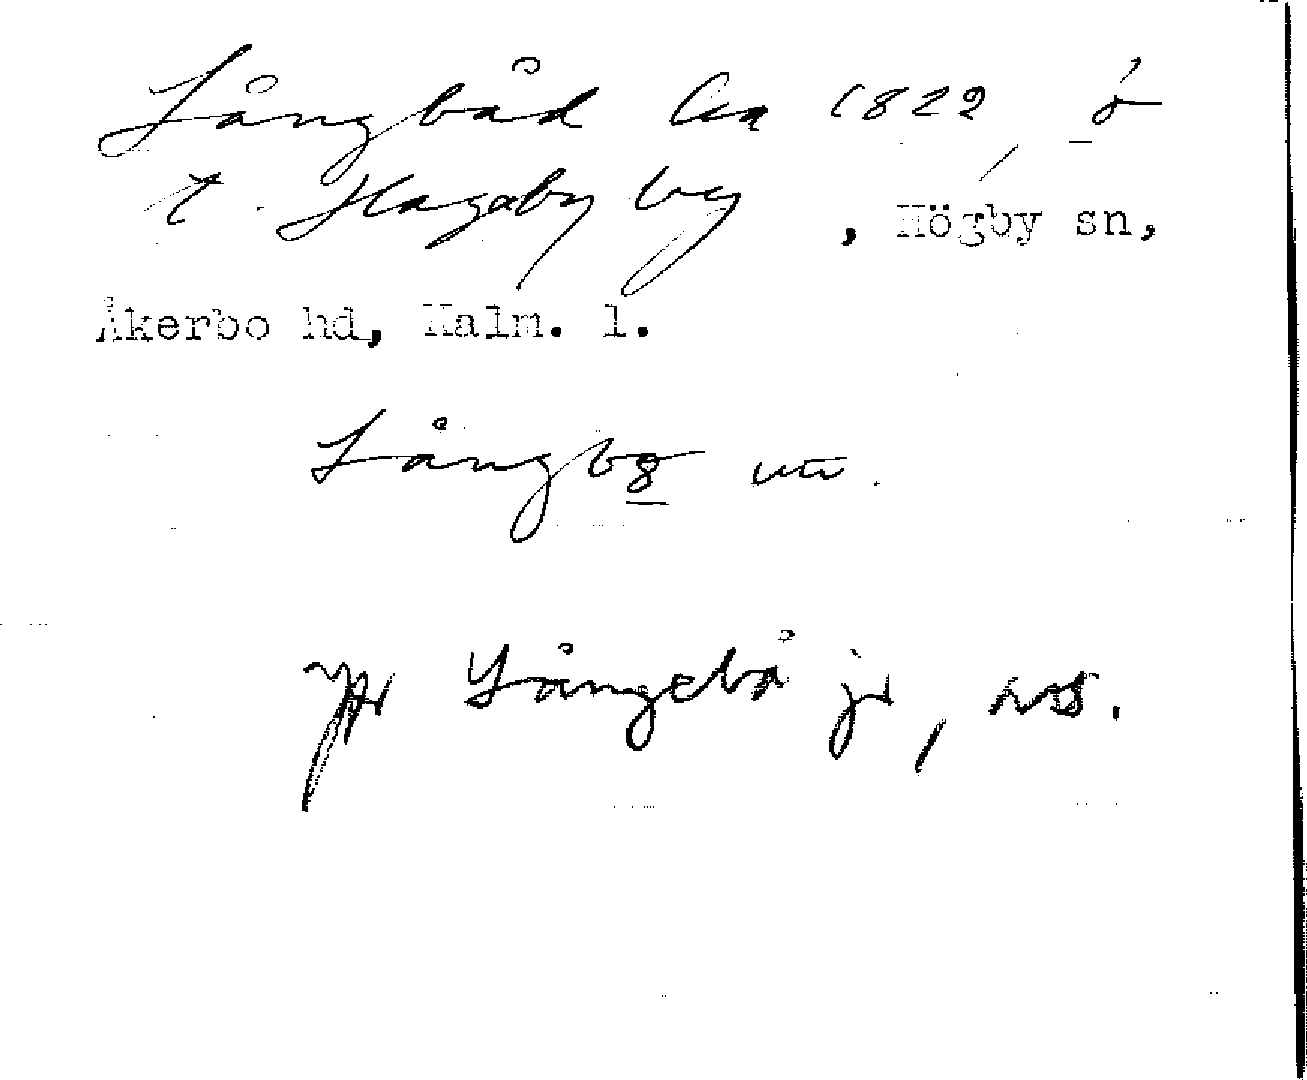 Långbåd Ca 1822, ö
t. Hagaby by, Högby sn,
Åkerbo hd, Kalm. l.
Långb8 utt.
Jfr Långebå jr, ns.